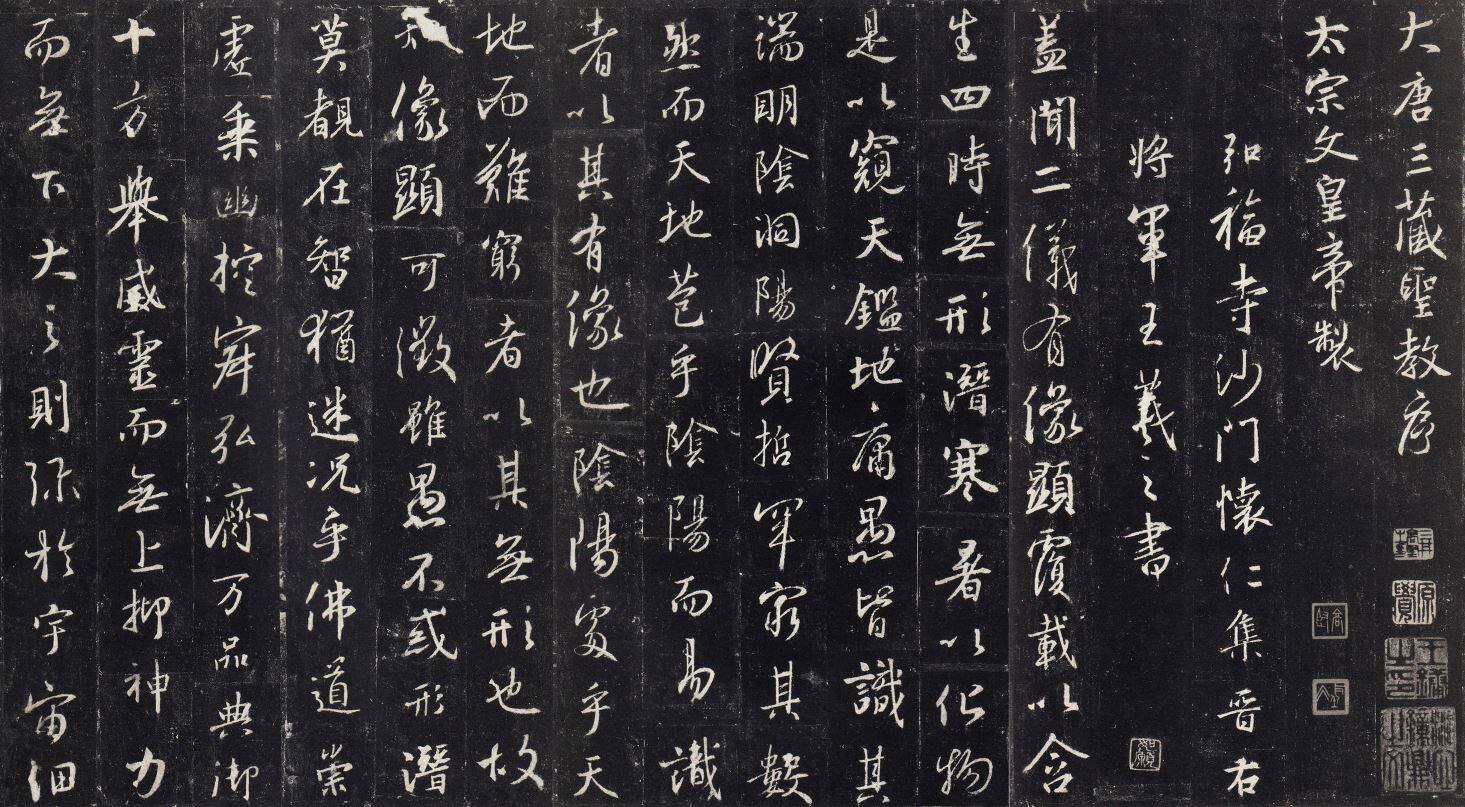 大唐三藏聖教序
太宗文皇帝製
弘福寺沙門懷仁集晉右
將軍王羲之書
蓋聞二儀有像顯覆載以含
生四時無形潛寒暑以化物
是以窺天鑑地庸愚皆識其
端明陰洞陽賢哲罕窮其數
然而天地苞乎陰陽而易識
者以其有像也陰陽處乎天
地而難窮者以其無形也故
知像顯可徵雖愚不惑形潛
莫覩在智猶迷況乎佛道崇
虛乘幽控寂弘濟万品典御
十方舉威靈而無上抑神力
而無下大之則彌於宇宙細